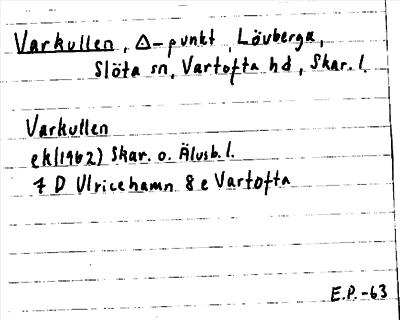 Varkullen, Δ-punkt, Lövberga,
Slöta sn, Vartofta hd, Skar. l.
Varkullen
ek(1962) Skar. o. Älvsb. l.
7 D Ulricehamn 8 e Vartofta
E.P.-63